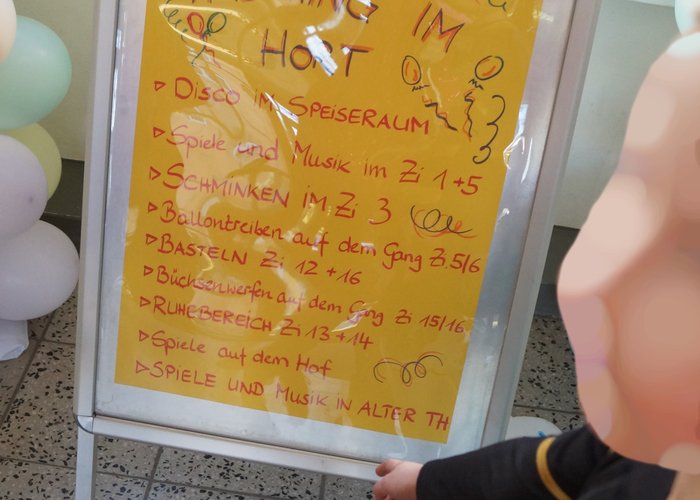 IM
HORT
▷ DISCO IM SPEISERAUM
▷ Spiele und Musik im Zi 1+5
▷ SCHMINKEN IM Zi 3
▷ Ballontreiben auf dem Gang Zi.5/6
▷ BASTELN Zi 12+16
▷ Büchsenwerfen auf dem Gang Zi 15/16
▷ RUHEBEREICH Zi 13+14
▷ Spiele auf dem Hof
▷ SPIELE UND MUSIK IN ALTER TH